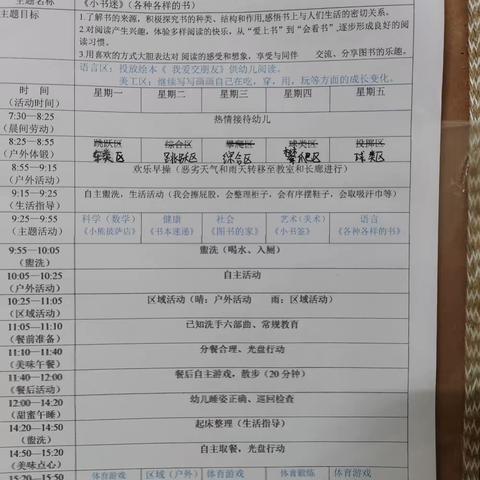 主题名称 《小书迷》（各种各样的书）
主题目标 1.了解书的来源，积极探究书的种类、结构和作用,感悟书上与人们生活的密切关系。
2.对阅读产生兴趣，体验多样阅读的快乐，从“爱上书”到“会看书”,逐步形成良好的阅
读习惯。
3.用喜欢的方式大胆表达对 阅读的感受和想象，享受与同伴 交流、分享图书的乐趣。
语言区：投放绘本《 我爱交朋友》供幼儿阅读。
美工区：继续写写画画自己在吃，穿，用，玩等方面的成长变化。
时 间 星期一 星期二 星期三 星期四 星期五
（活动时间）
7:30—8:25 热情接待幼儿
（晨间劳动）
8:25—8:55 跳跃区 综合区 攀爬区 球类区 投掷区
（户外体锻） 车类区 跳跃区 综合区 攀爬区 球类区
8:55—9:15 欢乐早操（恶劣天气和雨天转移至教室和长廊进行）
（户外活动）
9:15—9:25 自主盥洗，生活活动（我会擦屁股，会整理柜子，会有序摆鞋子，会取吸汗巾等）
（生活指导）
9:25—9:55 科学（数学） 健康 社会 艺术（美术） 语言
（主题活动） 《小熊披萨店》 《书本迷递》 《图书的家》 《小书签》 《各种各样的书》
9:55—10:05 盥洗（喝水、入厕）
（盥洗）
10:05—10:25 自主活动
（户外活动）
10:25—11:05 区域活动（晴：户外活动 雨：区域活动）
（区域活动）
11:05—11:10 已知洗手六部曲、常规教育
（餐前准备）
11:10—11:40 分餐合理、光盘行动
（美味午餐）
11:40—12:00 餐后自主游戏，散步（20 分钟）
（餐后活动）
12:00—14:20 幼儿睡姿正确、巡回检查
（甜蜜午睡）
14:20—14:50 起床整理（生活指导）
（盥洗）
14:50—15:20 自主取餐，光盘行动
（美味点心）
15:20—15:50 体育游戏 区域（户外） 体育游戏 体育锻炼 体育游戏